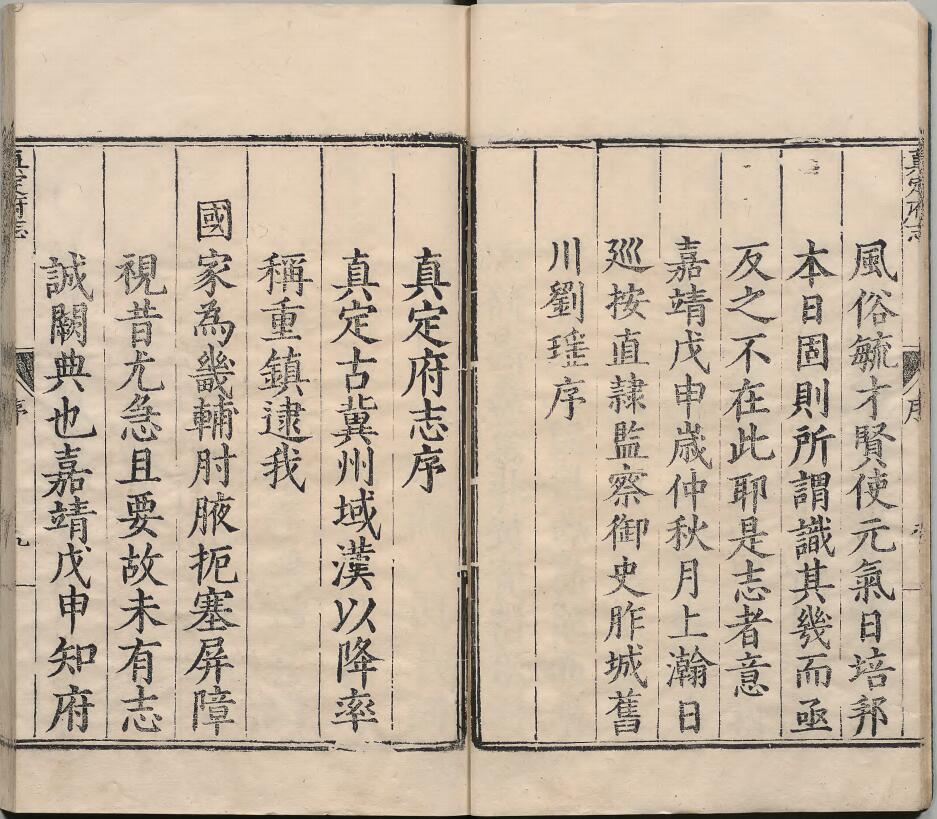 風俗毓才賢使元氣日培邦
本日固則所謂識其幾而亟
反之不在此耶是志者意
嘉靖戊申歲仲秋月上瀚日
巡按直隷監察御史胙城舊
川劉瑶序
真定府志序
真定古冀州域漢以降率
稱重鎮逮我
國家為畿輔肘腋扼塞屏障
視昔尤急且要故未有志
誠闕典也嘉靖戊申知府
真定府志
序
九